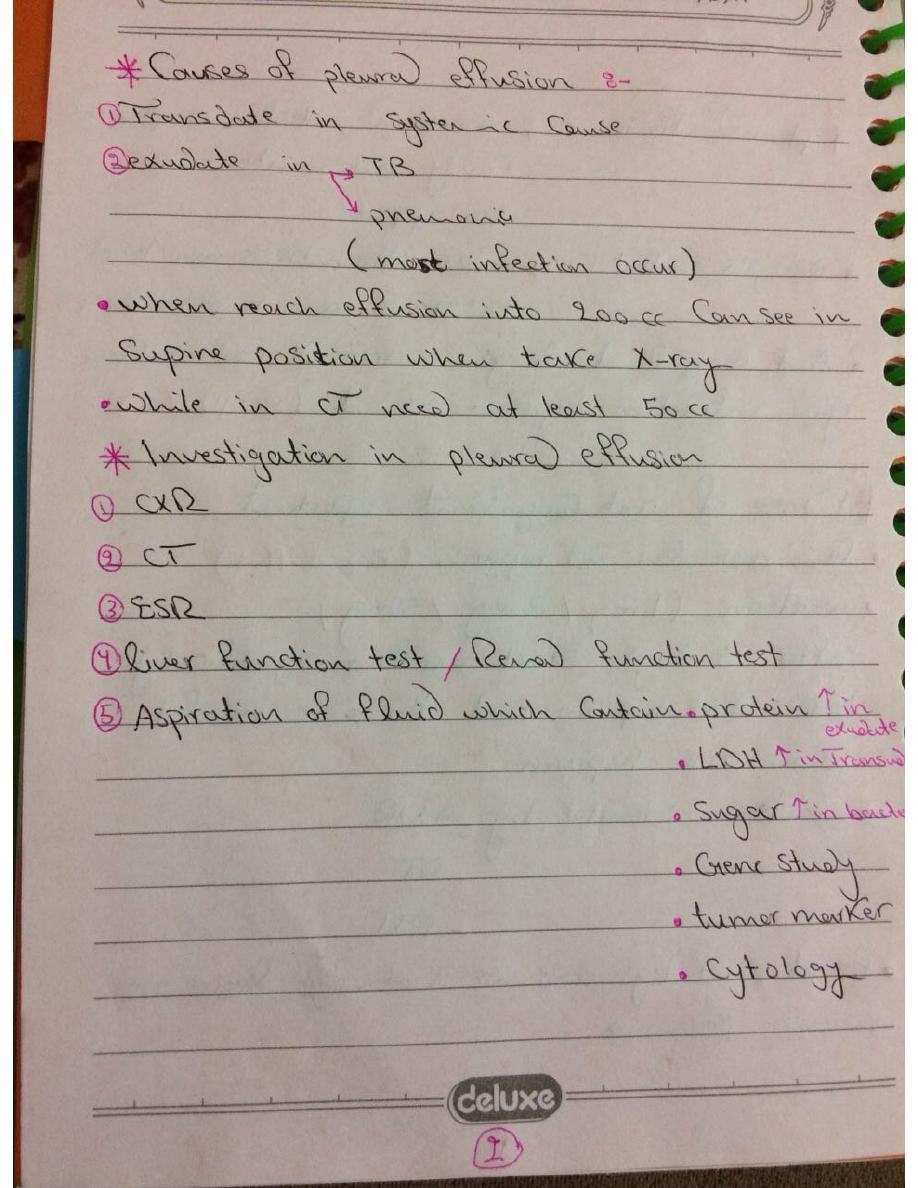 * Causes of pleural effusion :-
① Transdate in systemic Cause
② exudate in → TB
↘ pnemonia
(most infection occur)
• when reach effusion into 200 cc Can see in
Supine position when take X-ray
• while in CT need at least 50 cc
* Investigation in pleural effusion
① CXR
② CT
③ ESR
④ liver function test / Renal function test
⑤ Aspiration of fluid which Contain • protein ↑ in
exudate
• LDH ↑ in Transud
• Sugar ↑ in bacte
• Gene study
• tumer marker
• Cytology
deluxe
1